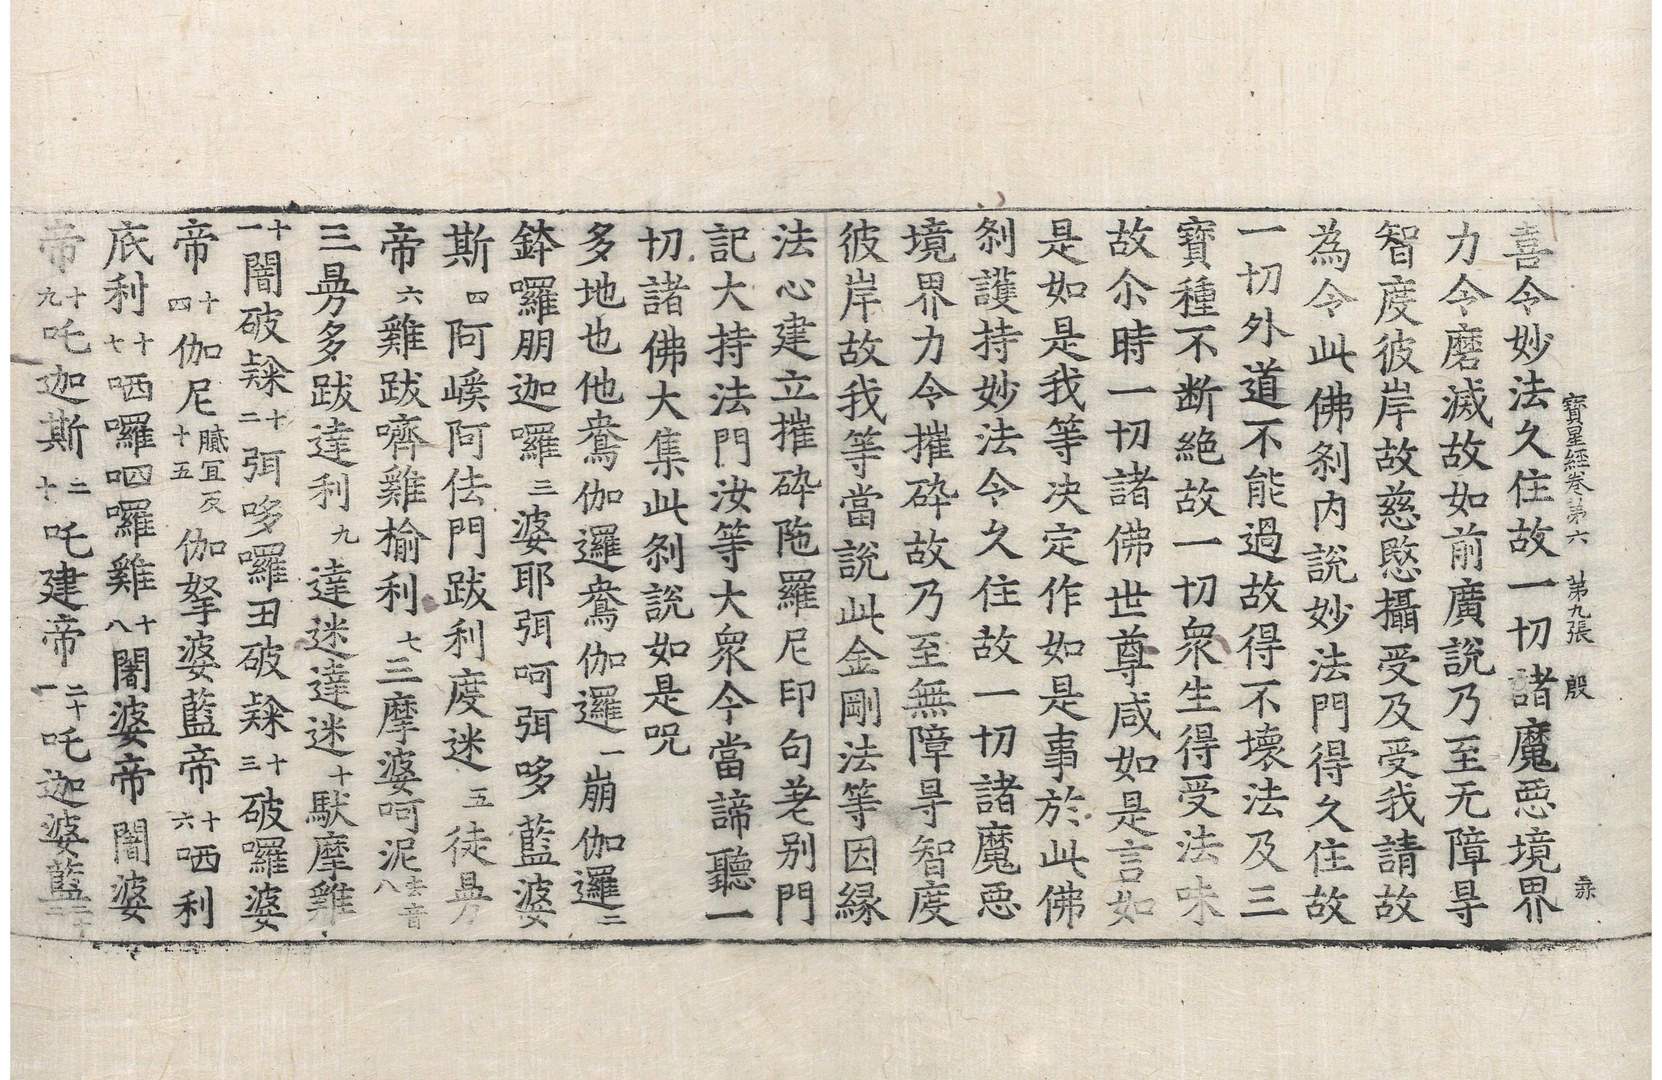 寶星經卷第六　第九張　殷
喜令妙法久住故一切諸魔惡境界
力令磨滅故如前廣說乃至无障㝵
智度彼岸故慈愍攝受及受我請故
為令此佛剎內說妙法門得久住故
一切外道不能過故得不壞法及三
寶種不断絕故一切眾生得受法味
故尒時一切諸佛世尊咸如是言如
是如是我等決定作如是事於此佛
剎護持妙法令久住故一切諸魔惡
境界力令摧碎故乃至無障㝵智度
彼岸故我等當說此金剛法等因緣
法心建立摧碎陁羅尼印句差別門
記大持法門汝等大眾今當諦聽一
切諸佛大集此剎說如是呪
多地也他鴦伽邏鴦伽邏一崩伽邏二
鉢囉朋迦囉三婆耶弭呵弭哆藍婆
斯四阿㠋阿佉門跋利度迷五徒㬅
帝六雞跋嚌雞榆利七三摩婆呵泥去音八
三㬅多跋達利九達迷達迷十馱摩雞
十一闍破䤈十二弭哆囉丑破䤈十三破囉婆
帝十四伽尼膩冝反十五伽拏婆藍帝十六哂利
底利十七哂囉呬囉雞十八闍婆帝闍婆
帝十九吒迦斯二十吒建帝二十一吒迦婆藍